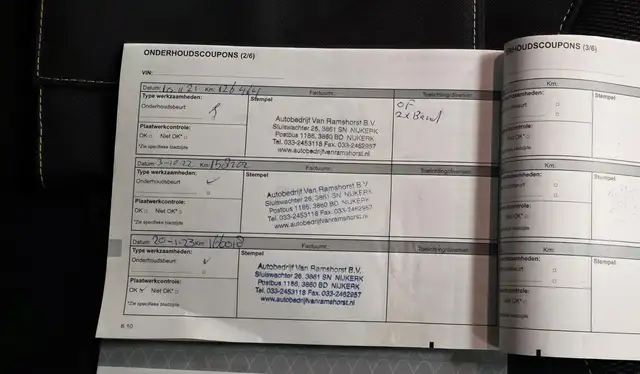 ONDERHOUDSCOUPONS (2/6)
VIN:
Datum: Km: 126464 Factuurnr.: Toelichting/diversen:
Type werkzaamheden: Stempel
Onderhoudsbeurt
OF
2x Band
Autobedrijf Van Ramshorst B.V.
Sluiswachter 25, 3861 SN NIJKERK
Postbus 1186, 3860 BD NIJKERK
Tel. 033-2453118 Fax. 033-2462957
www.autobedrijfvanramshorst.nl
Plaatwerkcontrole:
OK Niet OK*
*Zie specifieke bladzijde
Datum: 3-10-22 Km: 158202 Factuurnr.: Toelichting/diversen:
Type werkzaamheden: Stempel
Onderhoudsbeurt
Autobedrijf Van Ramshorst B.V.
Sluiswachter 25, 3861 SN NIJKERK
Postbus 1186, 3860 BD NIJKERK
Tel. 033-2453118 Fax. 033-2462957
www.autobedrijfvanramshorst.nl
Plaatwerkcontrole:
OK Niet OK*
*Zie specifieke bladzijde
Datum: 20-1-23 Km: Factuurnr.: Toelichting/diversen:
Type werkzaamheden: Stempel
Onderhoudsbeurt
Autobedrijf Van Ramshorst B.V.
Sluiswachter 25, 3861 SN NIJKERK
Postbus 1186, 3860 BD NIJKERK
Tel. 033-2453118 Fax. 033-2462957
www.autobedrijfvanramshorst.nl
Plaatwerkcontrole:
OK Niet OK*
*Zie specifieke bladzijde
6.10
RHOUDSCOUPONS (3/6)
Km:
Stempel
Km:
Stempel
Km:
Stempel